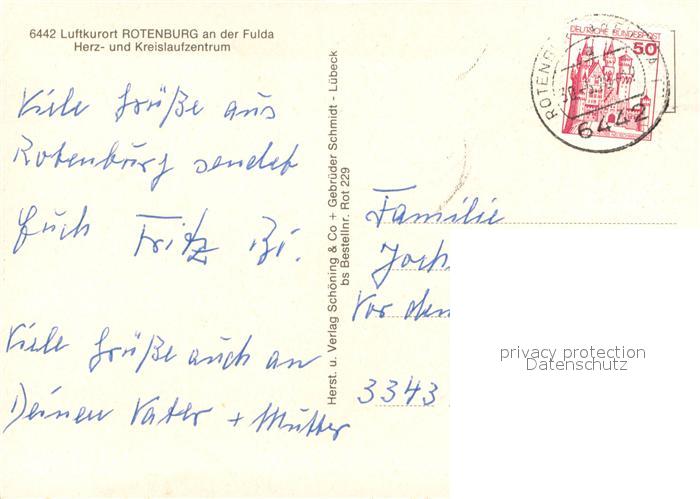 6442 Luftkurort ROTENBURG an der Fulda
Herz- und Kreislaufzentrum
Viele Grüße aus
Rotenburg sendet
Euch Fritz Bi.
Viele Grüße auch an
Deinen Vater + Mutter
Herst. u. Verlag Schöning & Co + Gebrüder Schmidt - Lübeck
bs Bestellnr. Rot 229
DEUTSCHE BUNDESPOST
50
6442
Familie
Joch
Vor den
3343
privacy protection
Datenschutz